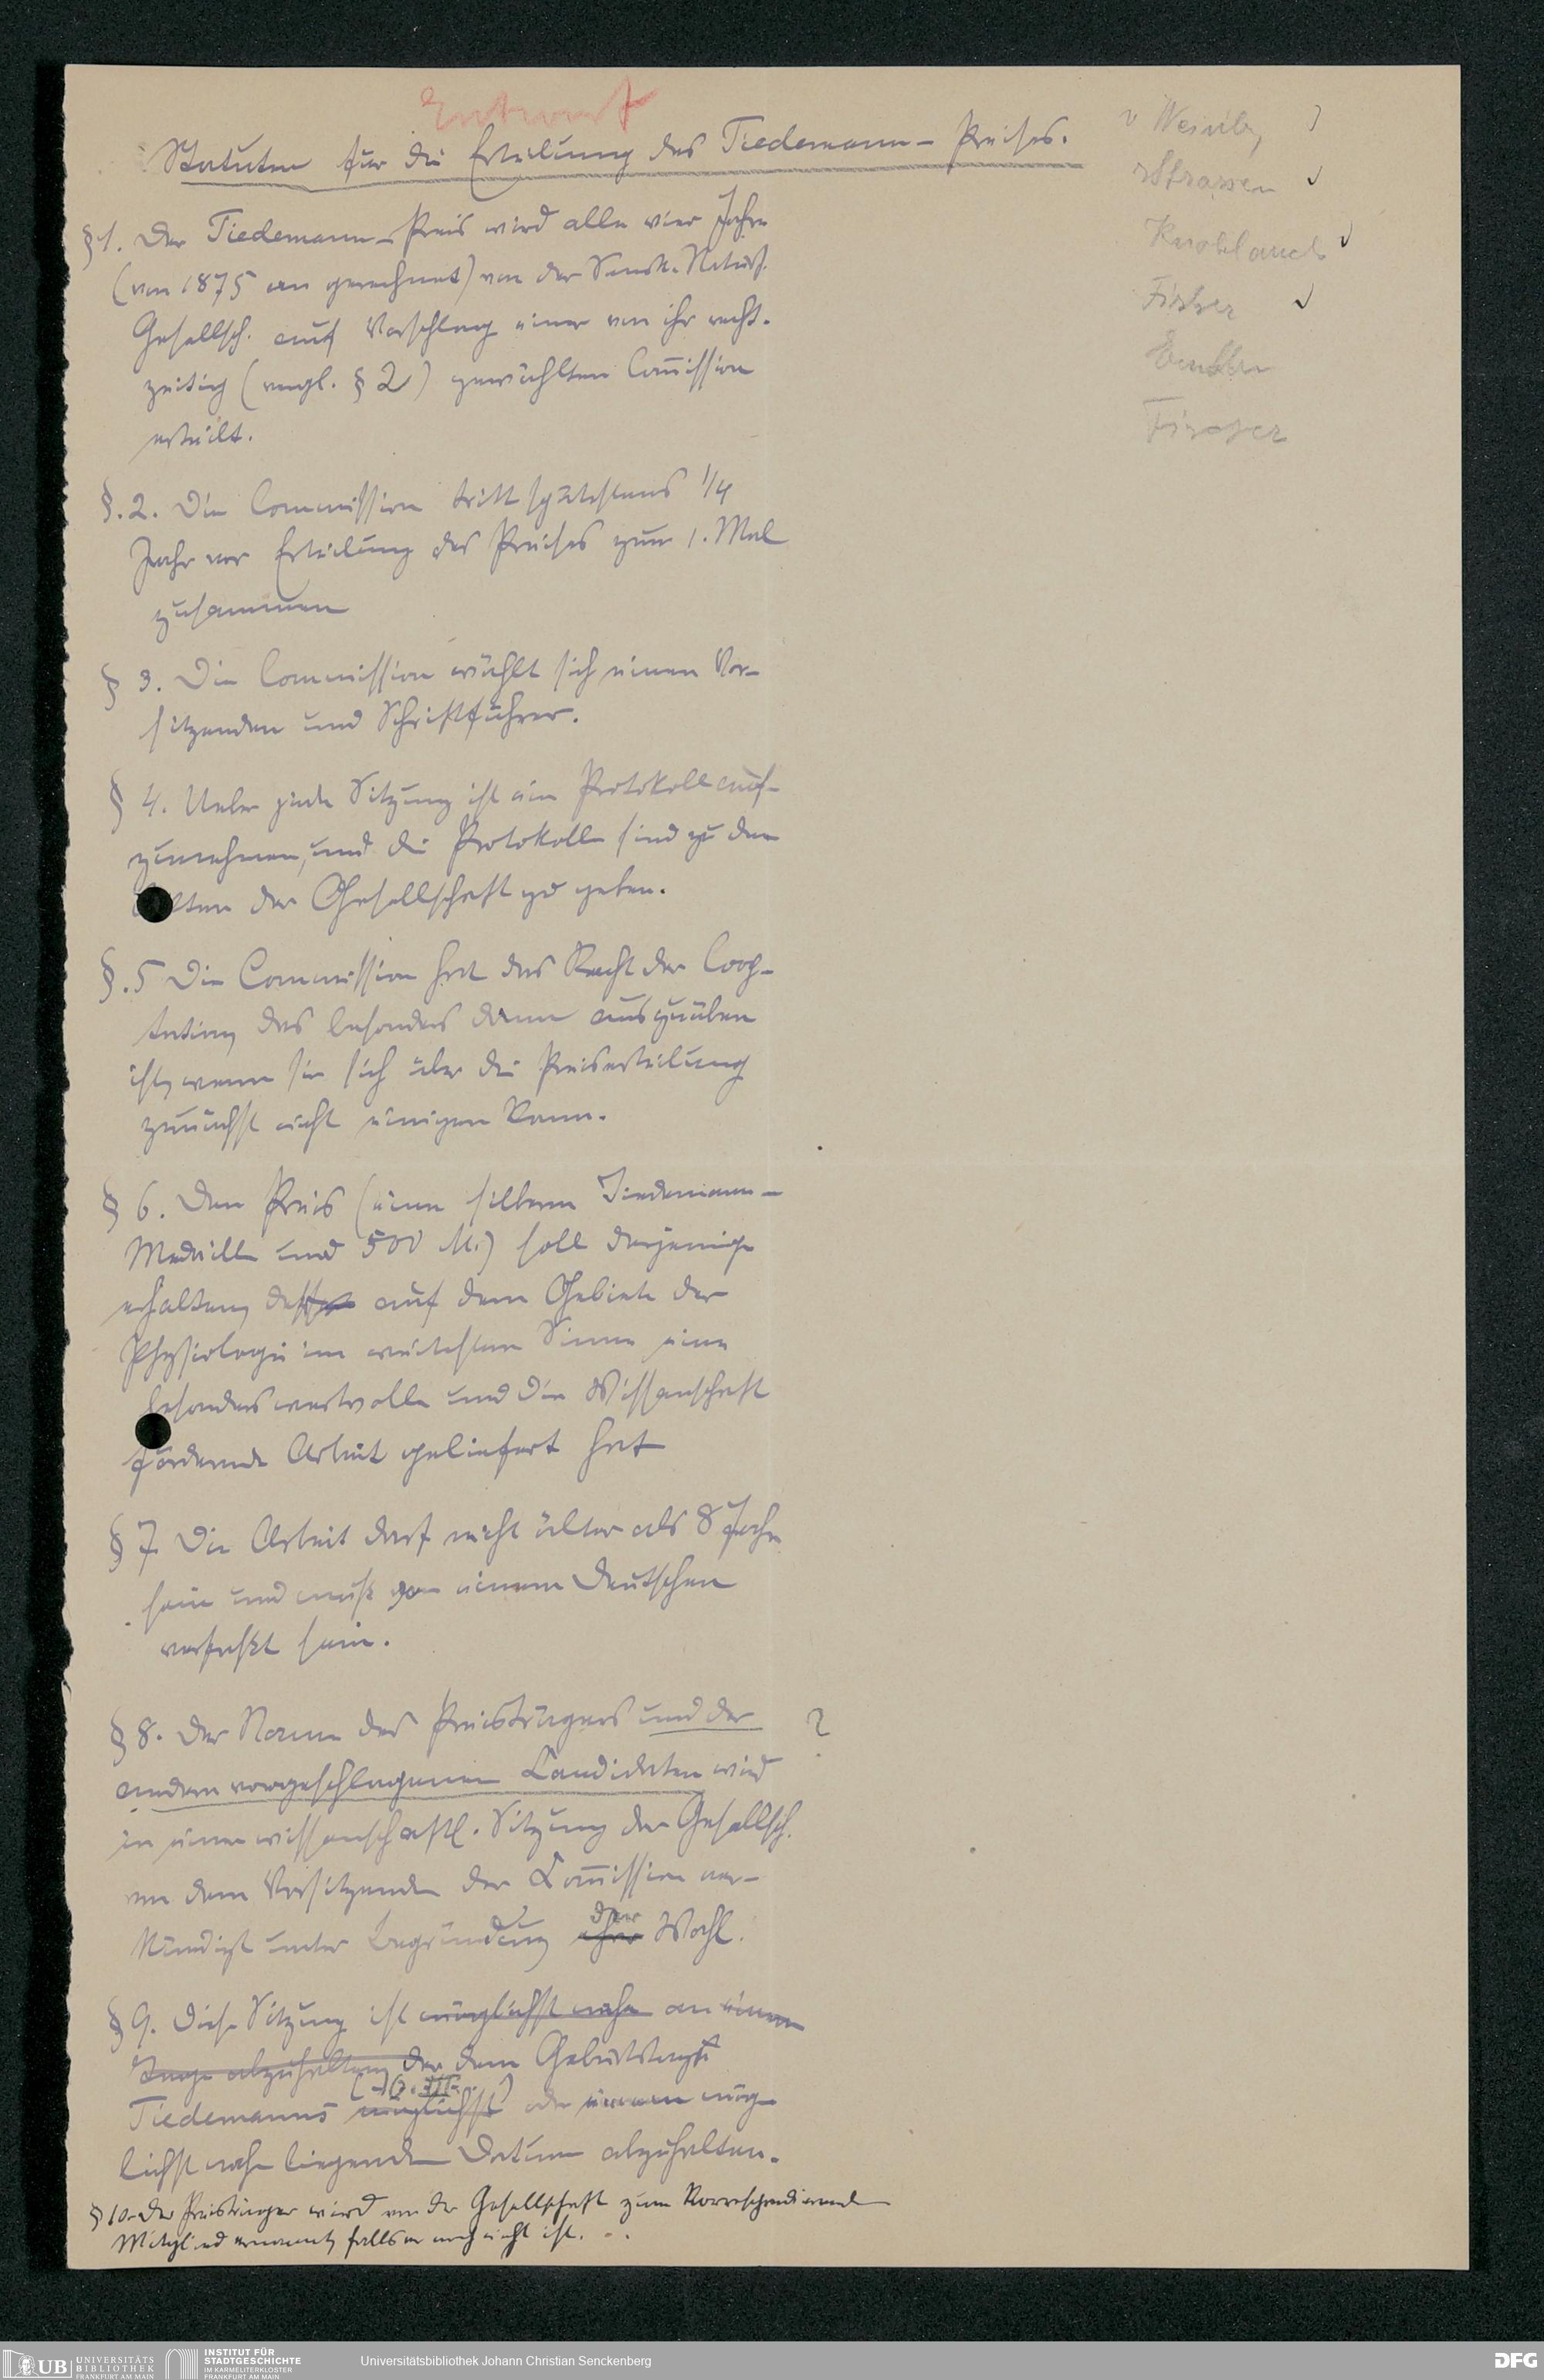 Entwurf
Statuten für die Erteilung des Tiedemann-Preises.
v Weinbg
zStrassen
Knoblauch
Fischer
Fischer
§1. Der Tiedemann-Preis wird alle vier Jahre
(von 1875 an gerechnet) von der Senck. Naturf.
Gesellsch. auf Vorschlag einer von ihr recht-
zeitig (vergl. § 2) gewählten Com̄ission
erteilt.
§.2. Die Commission tritt spätestens 1/4
Jahr vor Erteilung des Preises zum 1. Mal
zusammen
§ 3. Die Commission wählt sich einen Vor-
sitzenden und Schriftführer.
§ 4. Ueber jede Sitzung ist ein Protokoll auf-
zunehmen, und die Protokolle sind zu den
Akten der Gesellschaft zu geben.
§.5 Die Commission hat das Recht der Coop-
tation, das besonders dann auszuüben
ist, wenn sie sich über die Preiserteilung
zunächst nicht einigen kann.
§ 6. Den Preis (eine silberne Tiedemann-
Medaille und 500 M.) soll derjenige
erhalten, der auf dem Gebiete der
Physiologie im weitesten Sinne eine
besonders wertvolle und die Wissenschaft
fördernde Arbeit geliefert hat
§ 7. Die Arbeit darf nicht älter als 8 Jahre
sein und muß von einem Deutschen
verfaßt sein.
§ 8. Der Name des Preisträgers und der ?
andern vorgeschlagenen Candidaten wird
in einer wissenschaftl. Sitzung der Gesellsch.
von dem Vorsitzenden der Com̄ission ver-
kündigt unter Begründung ihrer der Wahl.
§ 9. Diese Sitzung ist möglichst nahe an einem
Tage abzuhalten, der dem Geburtstage
Tiedemanns möglichst oder einem mög-
lichst nahe liegenden Datum abzuhalten.
§ 10. Der Preisträger wird von der Gesellschaft zum korrespondierenden
Mitglied ernannt, falls er noch nicht ist.
UB UNIVERSITÄTS
BIBLIOTHEK
FRANKFURT AM MAIN
INSTITUT FÜR
STADTGESCHICHTE
IM KARMELITERKLOSTER
FRANKFURT AM MAIN
Universitätsbibliothek Johann Christian Senckenberg
DFG